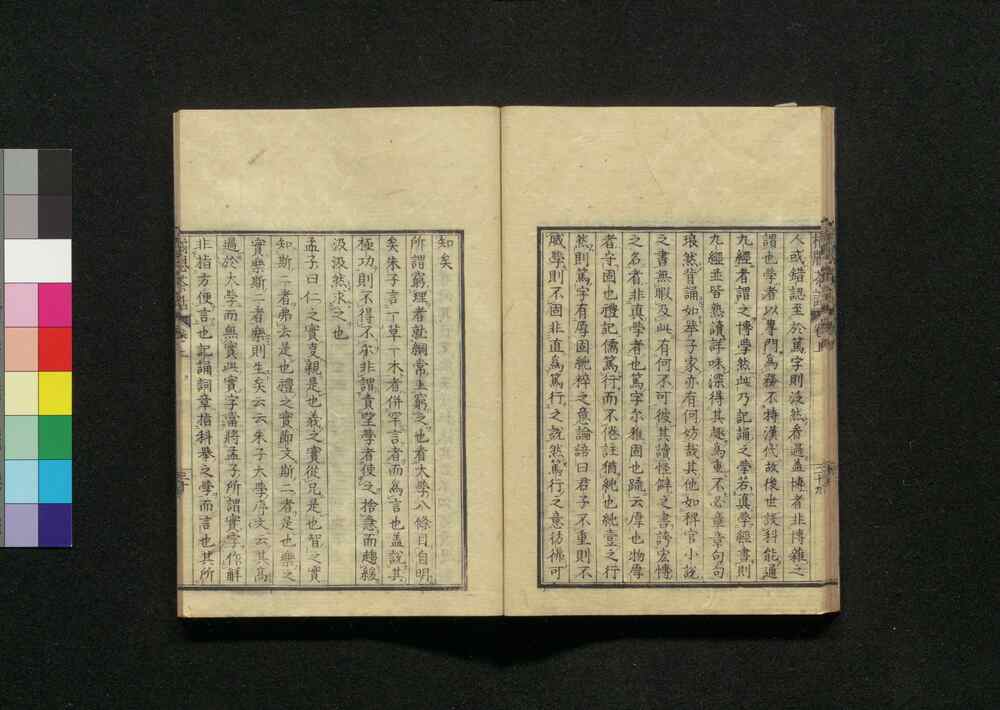 人或錯認至於篤字則泛然看過蓋博者非博雜之
謂也學者以專門為務不特漢代故後世設科能通
九經者謂之博學然此乃記誦之學若真學經書則
九經並皆熟讀詳味深得其趣為重不必章章句句
琅然背誦如莽子家亦有何妨哉其他如稗官小說
之書無暇及此有何不可彼其讀怪僻之書誇宏博
之名者非真學者也篤字尔雅固也疏云厚也物厚
者守固也禮記儒篤行而不倦註猶純也純壹之行
然則篤字有厚固純粹之意論語曰君子不重則不
威學則不固非直為篤行之說然篤行之意彷彿可
知矣
所謂窮理者就綱常上窮之也者大學八條目自明
矣朱子言一草一木者併罕言者而為言也蓋說其
極功則不得不尔非謂責望學者使之捨急而趨緩
汲汲然求之也
孟子曰仁之實事親是也義之實從兄是也智之實
知斯二者弗去是也禮之實節文斯二者是也樂之
實樂斯二者樂則生矣云云朱子大學序文云其高
過於大學而無實此實字當將孟子所謂實字作解
非指方便言也記誦詞章指科舉之學而言也其所